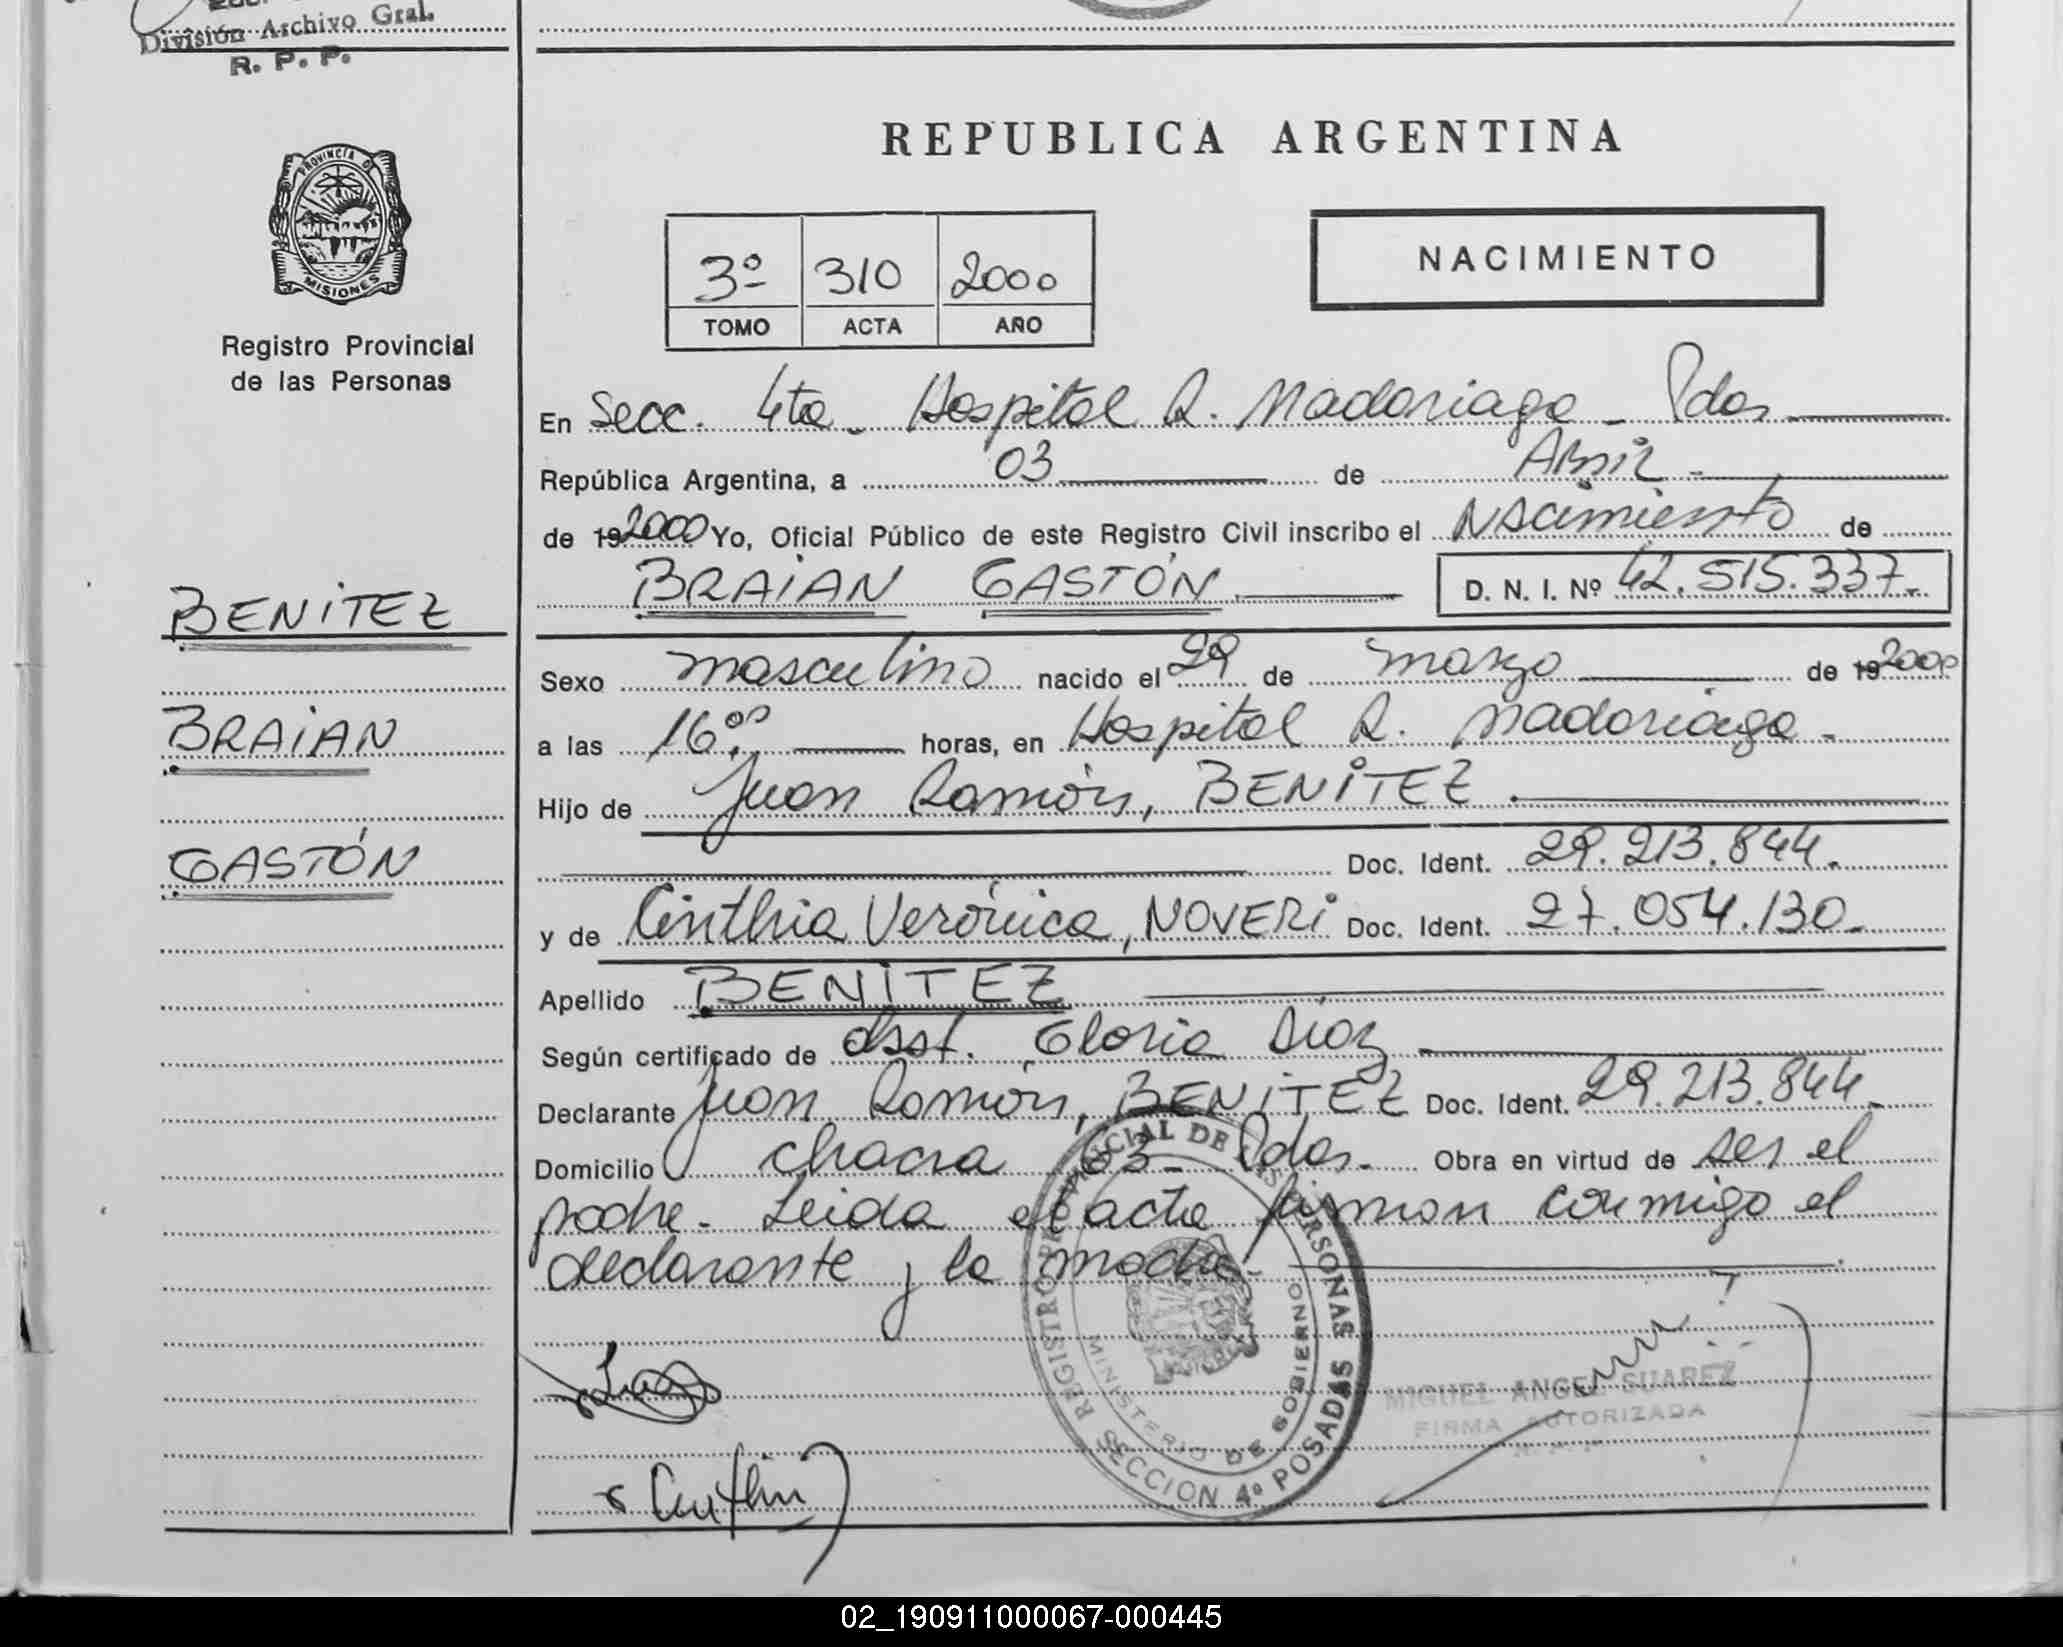 División Archivo Gral.
R. P. P.
PROVINCIA D
MISIONES
Registro Provincial
de las Personas
BENITEZ
BRAIAN
GASTÓN
REPUBLICA ARGENTINA
3º 310 2000
TOMO ACTA AÑO
NACIMIENTO
En Secc. 4ta - Hospital R. Madariaga - Pdas
República Argentina, a 03 de Abril -
de 19 2000 Yo, Oficial Público de este Registro Civil inscribo el Nacimiento de
BRAIAN GASTÓN D. N. I. Nº 42.515.337.-
Sexo masculino nacido el 29 de marzo de 19 2000
a las 16:00 horas, en Hospital R. Madariaga -
Hijo de Juan Ramón, BENITEZ
Doc. Ident. 29.213.844.
y de Cinthia Verónica, NOVERI Doc. Ident. 27.054.130-
Apellido BENITEZ
Según certificado de Asst. Gloria Díaz
Declarante Juan Ramón, BENITEZ Doc. Ident. 29.213.844-
Domicilio chacra 63 - Pdas. Obra en virtud de ser el
padre. Leida el acta firman conmigo el
declarante y la madre.
REGISTRO PROVINCIAL DE LAS PERSONAS
MINISTERIO DE GOBIERNO
SECCION 4º POSADAS
MIGUEL ANGEL SUAREZ
FIRMA AUTORIZADA
Cinthia
02_190911000067-000445